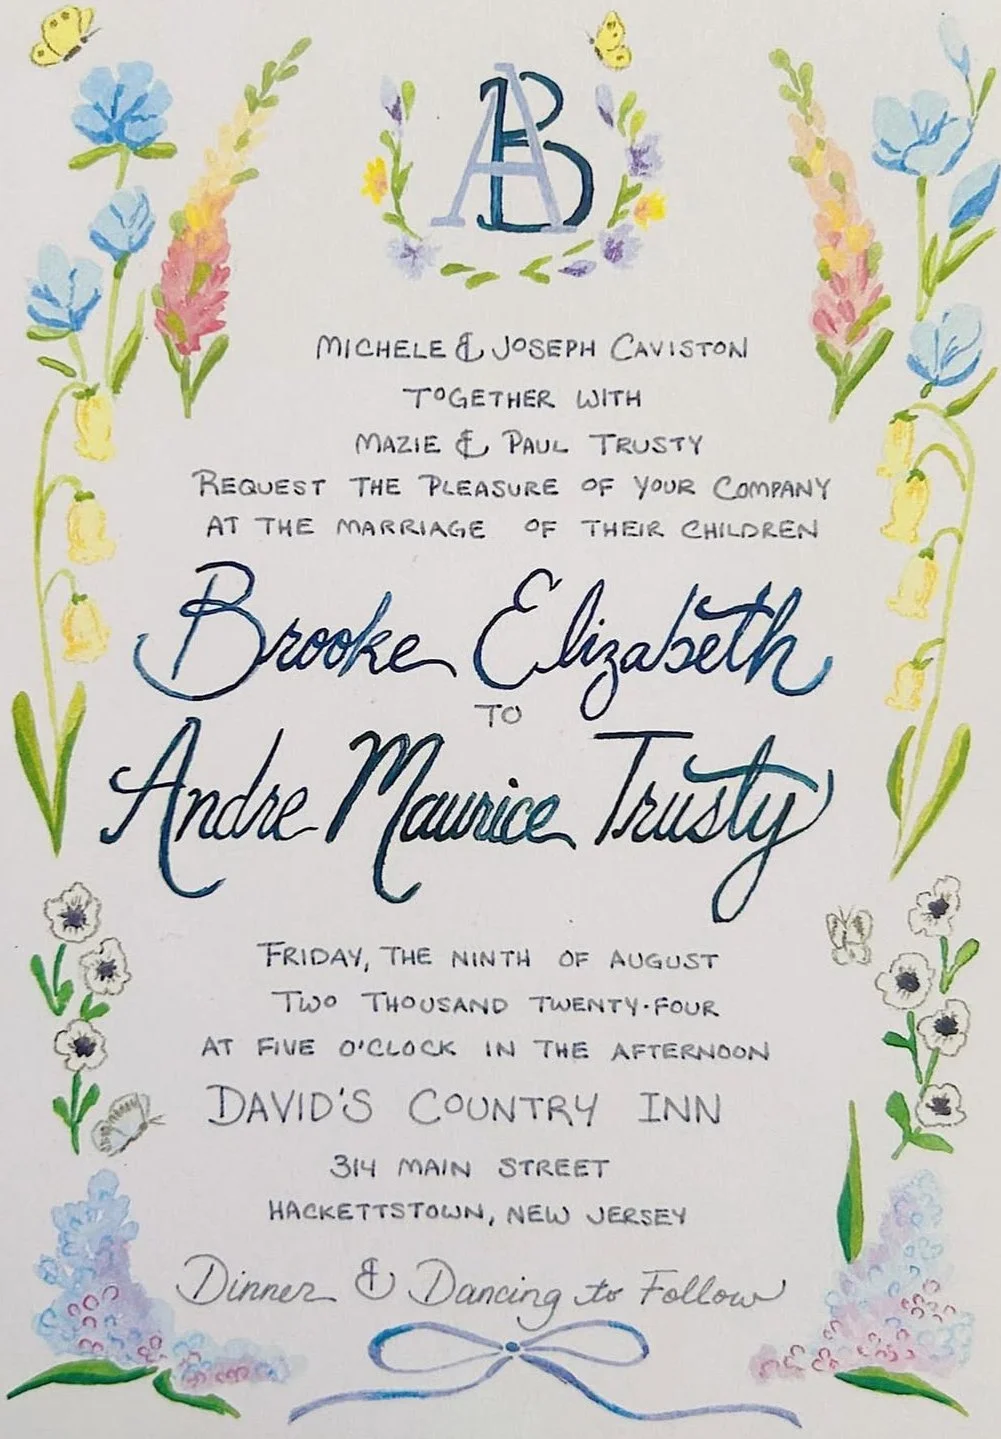 AB
MICHELE & JOSEPH CAVISTON
TOGETHER WITH
MAZIE & PAUL TRUSTY
REQUEST THE PLEASURE OF YOUR COMPANY
AT THE MARRIAGE OF THEIR CHILDREN
Brooke Elizabeth
TO
Andre Maurice Trusty
FRIDAY, THE NINTH OF AUGUST
TWO THOUSAND TWENTY-FOUR
AT FIVE O'CLOCK IN THE AFTERNOON
DAVID'S COUNTRY INN
314 MAIN STREET
HACKETTSTOWN, NEW JERSEY
Dinner & Dancing to Follow